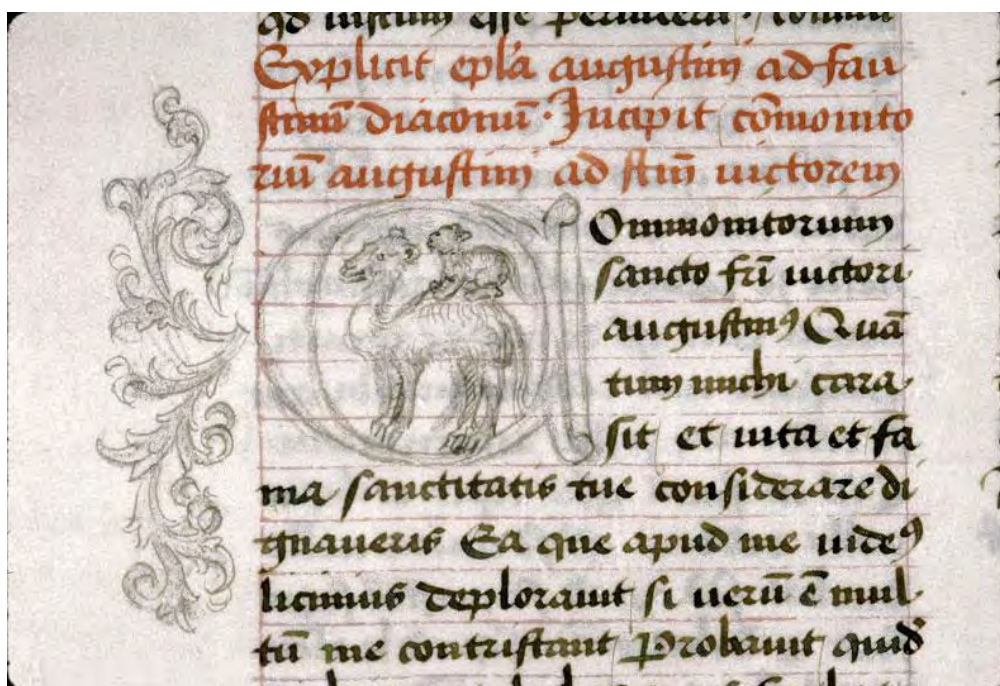 qd iustum esse
Explicit epl̃a augustini ad fau
stinũ diaconũ · Incipit cõmonito
riũ augustini ad sc̃m uictorem
Ommonitorium
sancto fr̃i uictori
augustinꝰ Quã
tum michi cara
sit et uita et fa
ma sanctitatis tue considerare di
gnaueris Ea que apud me uideꝰ
licinius deplorauit si uerũ ẽ mul
tũ me contristant Probauit quid̃